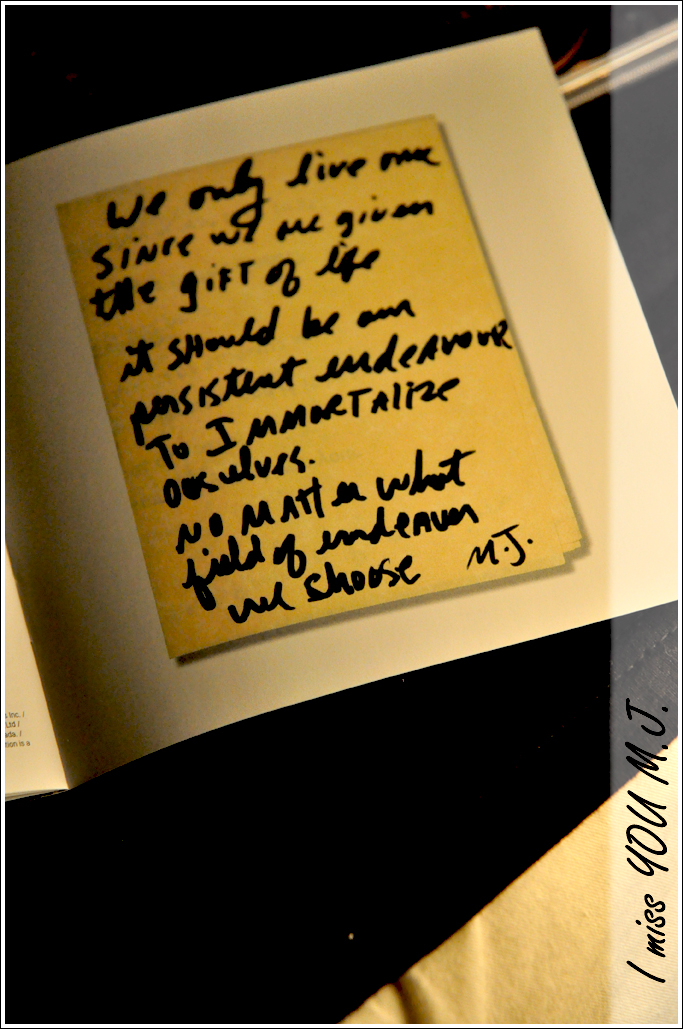 We only live once
SiNce we are given
the gift of life
it should be our
persistent endeavour
To Immortalize
ourselves.
NO MATTer what
field of endeavor
we shoose M.J.
s Inc. /
Ltd /
ada. /
tion is a
I miss YOU M.J.